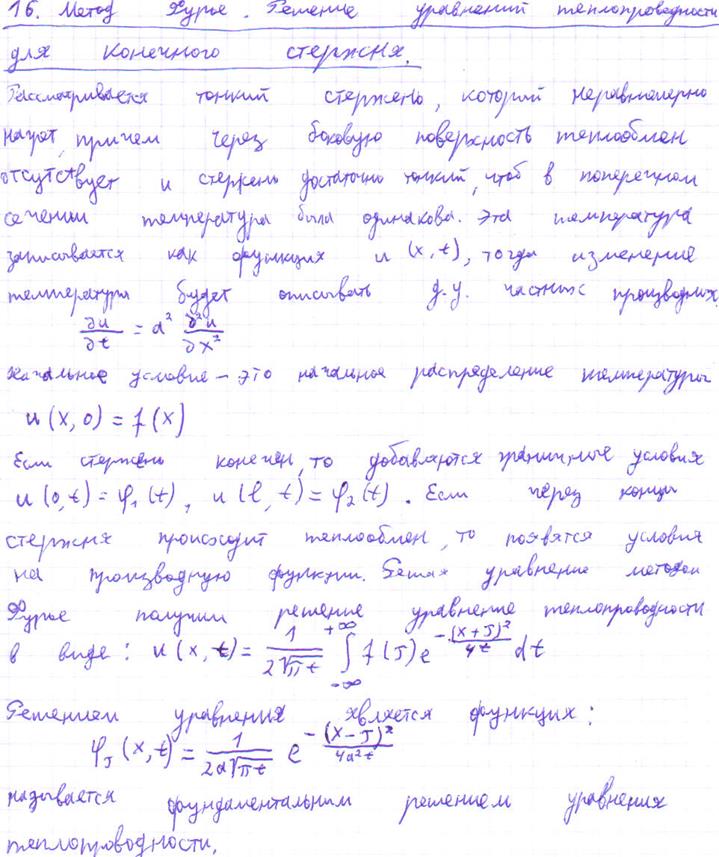 16. Метод Фурье. Решение уравнений теплопроводности
для конечного стержня.
Рассматривается тонкий стержень, который неравномерно
нагрет, причем через боковую поверхность теплообмен
отсутствует и стержень достаточно тонкий, чтоб в поперечном
сечении температура была одинакова. Эта температура
записывается как функция u (x, t), тогда изменение
температуры будет описывать д.у. частных производных.
∂u/∂t = a² ∂²u/∂x²
Начальное условие – это начальное распределение температуры
u (x, 0) = f (x)
Если стержень конечен, то добавляются граничные условия
u (0, t) = φ₁ (t), u (l, t) = φ₂ (t). Если через концы
стержня происходит теплообмен, то появятся условия
на производную функции. Решая уравнение методом
Фурье получим решение уравнение теплопроводности
в виде: u (x, t) = 1/(2√πt) ∫_{-∞}^{+∞} f (J) e^{-(x+J)²/4t} dt
Решением уравнения является функция:
φ_J (x, t) = 1/(2a√πt) e^{-(x-J)²/4a²t}
называется фундаментальным решением уравнения
теплопроводности.